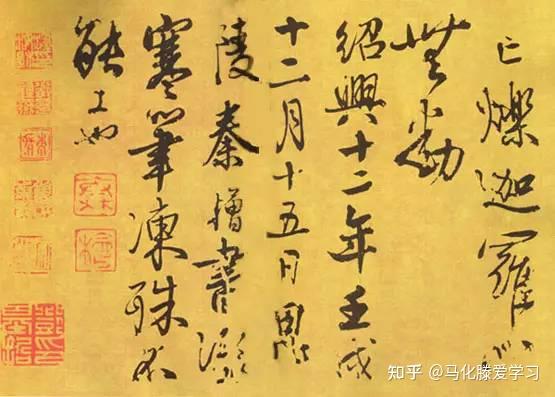 亡爍迦羅心
無動
紹興十二年壬戌
十二月十五日
陵秦檜書
寒筆凍殊不
能工也
知乎 @马化滕爱学习